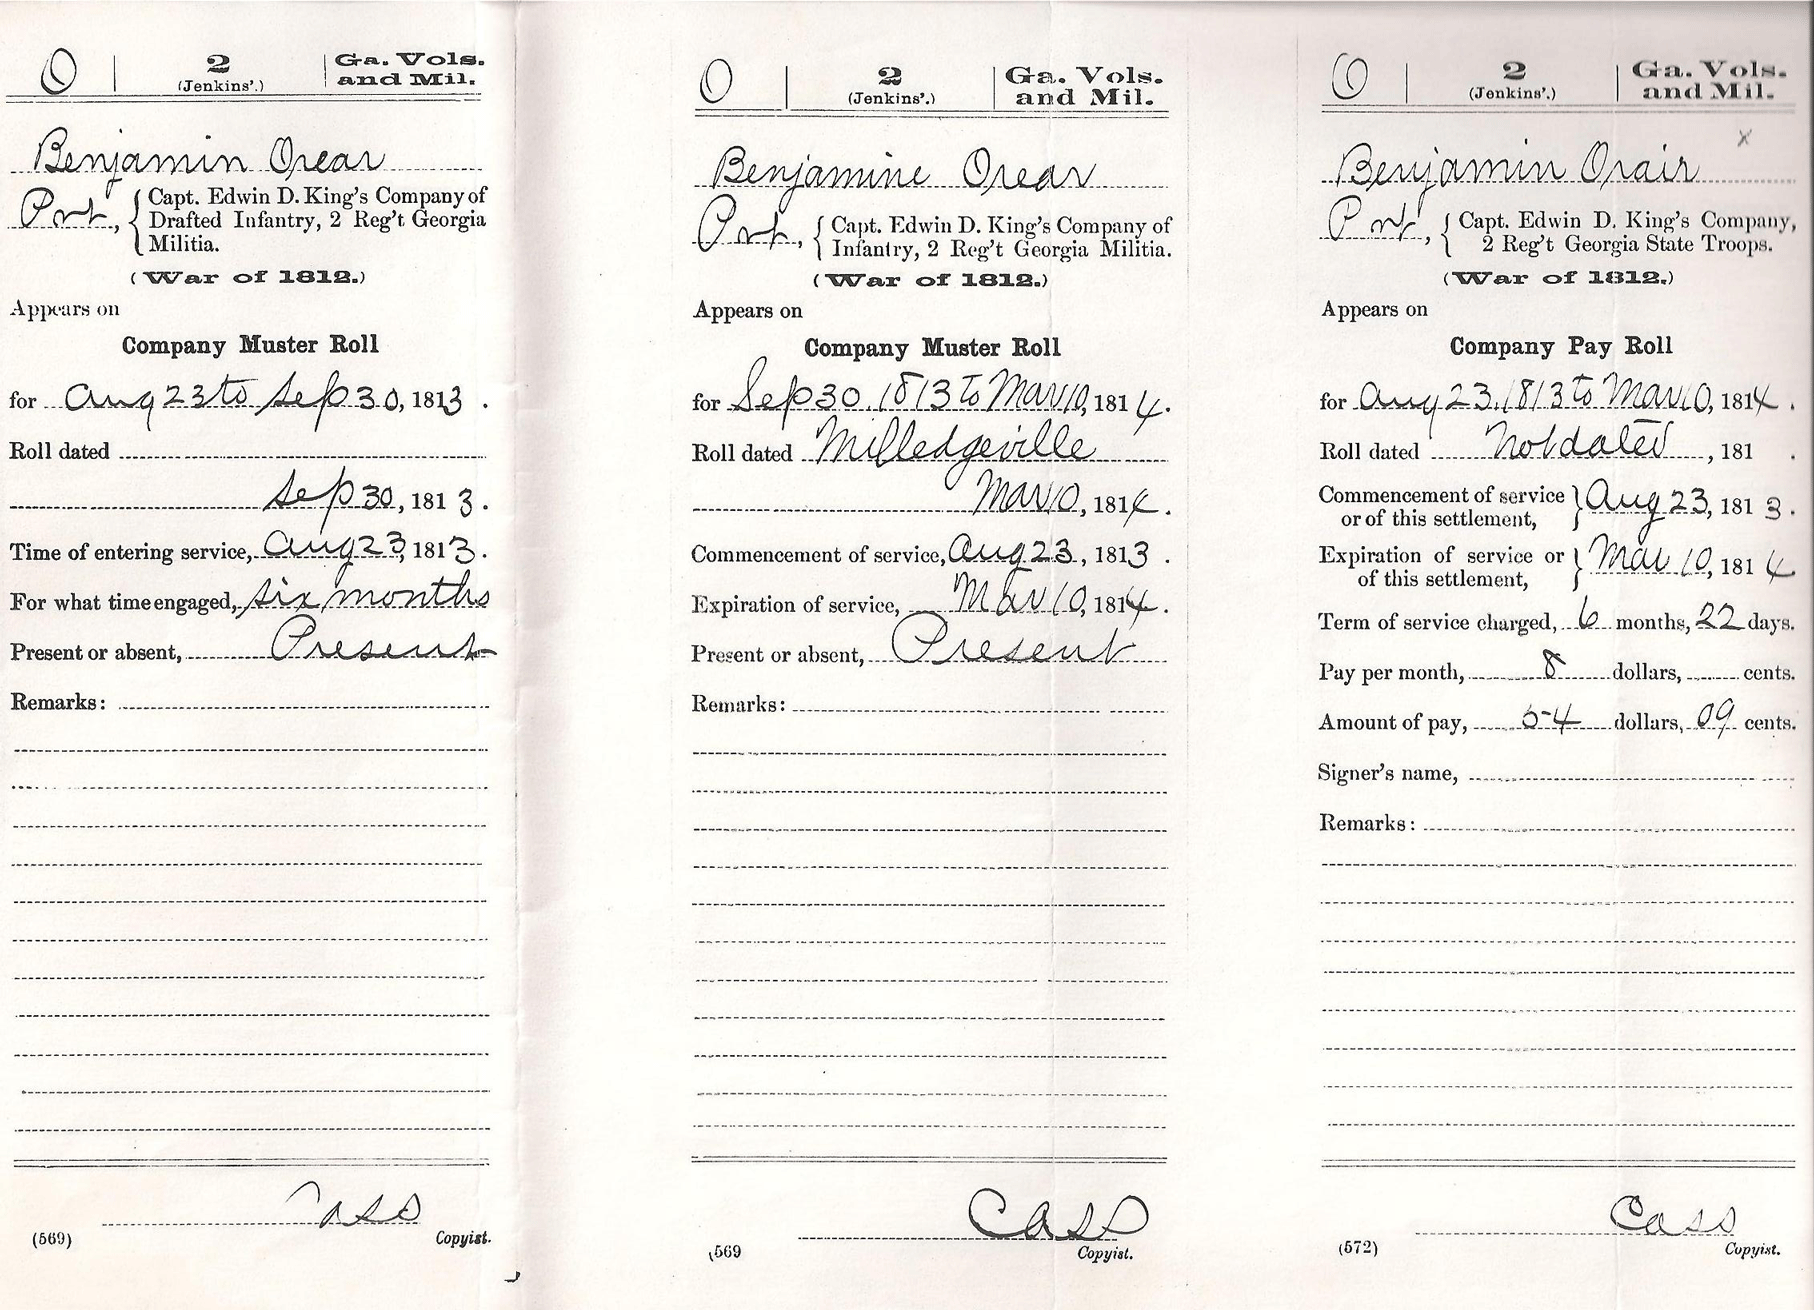 O 2 Ga. Vols.
(Jenkins'.) and Mil.
Benjamin Orear
Pvt, { Capt. Edwin D. King's Company of
Drafted Infantry, 2 Reg't Georgia
Militia.
(War of 1812.)
Appears on
Company Muster Roll
for Aug 23 to Sep 30, 1813.
Roll dated
Sep 30, 1813.
Time of entering service, Aug 23, 1813.
For what time engaged, six months
Present or absent, Present
Remarks:
Cass
(569) Copyist.
O 2 Ga. Vols.
(Jenkins'.) and Mil.
Benjamine Orear
Pvt, { Capt. Edwin D. King's Company of
Infantry, 2 Reg't Georgia Militia.
(War of 1812.)
Appears on
Company Muster Roll
for Sep 30 1813 to Mar 10, 1814.
Roll dated Milledgeville
Mar 10, 1814.
Commencement of service, Aug 23, 1813.
Expiration of service, Mar 10, 1814.
Present or absent, Present
Remarks:
Cass
(569 Copyist.
O 2 Ga. Vols.
(Jenkins'.) and Mil.
x
Benjamin Orair
Pvt, { Capt. Edwin D. King's Company,
2 Reg't Georgia State Troops.
(War of 1812.)
Appears on
Company Pay Roll
for Aug 23, 1813 to Mar 10, 1814.
Roll dated Not dated, 181 .
Commencement of service } Aug 23, 1813.
or of this settlement,
Expiration of service or } Mar 10, 1814
of this settlement,
Term of service charged, 6 months, 22 days.
Pay per month, 8 dollars, cents.
Amount of pay, 54 dollars, 09 cents.
Signer's name,
Remarks:
Cass
(572) Copyist.